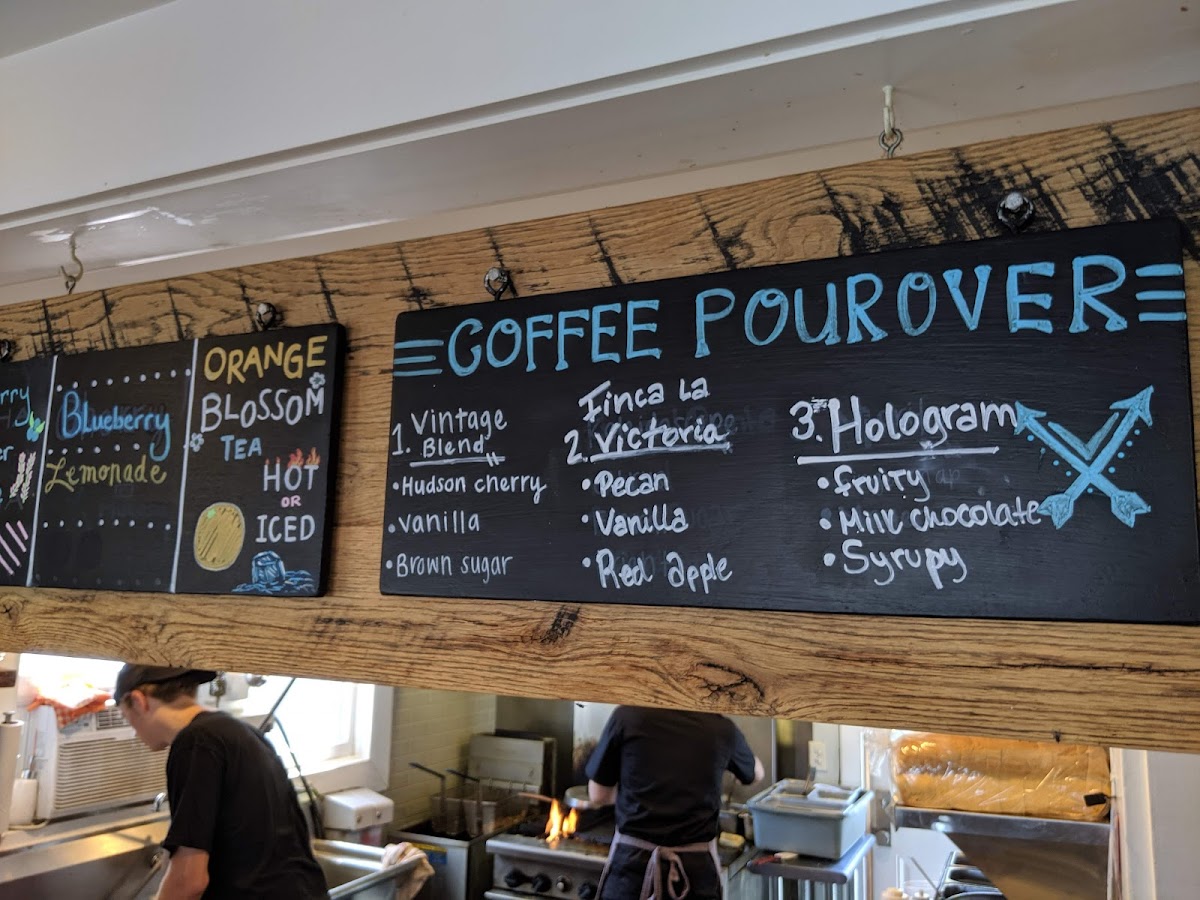 Blueberry
Lemonade
ORANGE
BLOSSOM
TEA
HOT
OR
ICED
COFFEE POUROVER
1. Vintage
Blend
• Hudson cherry
• vanilla
• Brown sugar
Finca La
2. Victoria
• Pecan
• Vanilla
• Red apple
3. Hologram
• fruity
• Milk chocolate
• Syrupy